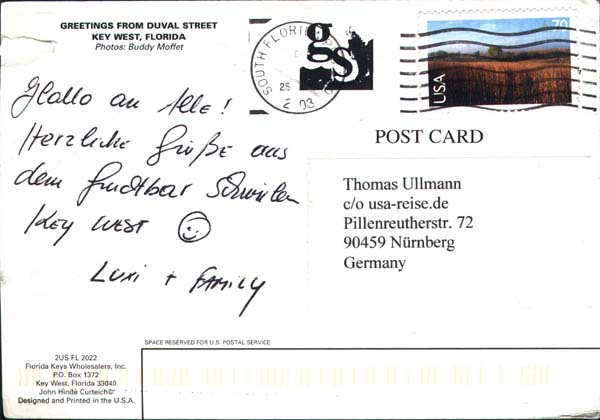 GREETINGS FROM DUVAL STREET
KEY WEST, FLORIDA
Photos: Buddy Moffet
SOUTH FLORIDA
gs
25
2 03
70
USA
Hallo an Alle!
Herzliche Grüße aus
dem furchtbar schwülen
KEY WEST
LUXI + FAMILY
POST CARD
Thomas Ullmann
c/o usa-reise.de
Pillenreutherstr. 72
90459 Nürnberg
Germany
SPACE RESERVED FOR U.S. POSTAL SERVICE
2US FL 2022
Florida Keys Wholesalers, Inc.
P.O. Box 1372
Key West, Florida 33040
John Hinde Curteich©
Designed and Printed in the U.S.A.